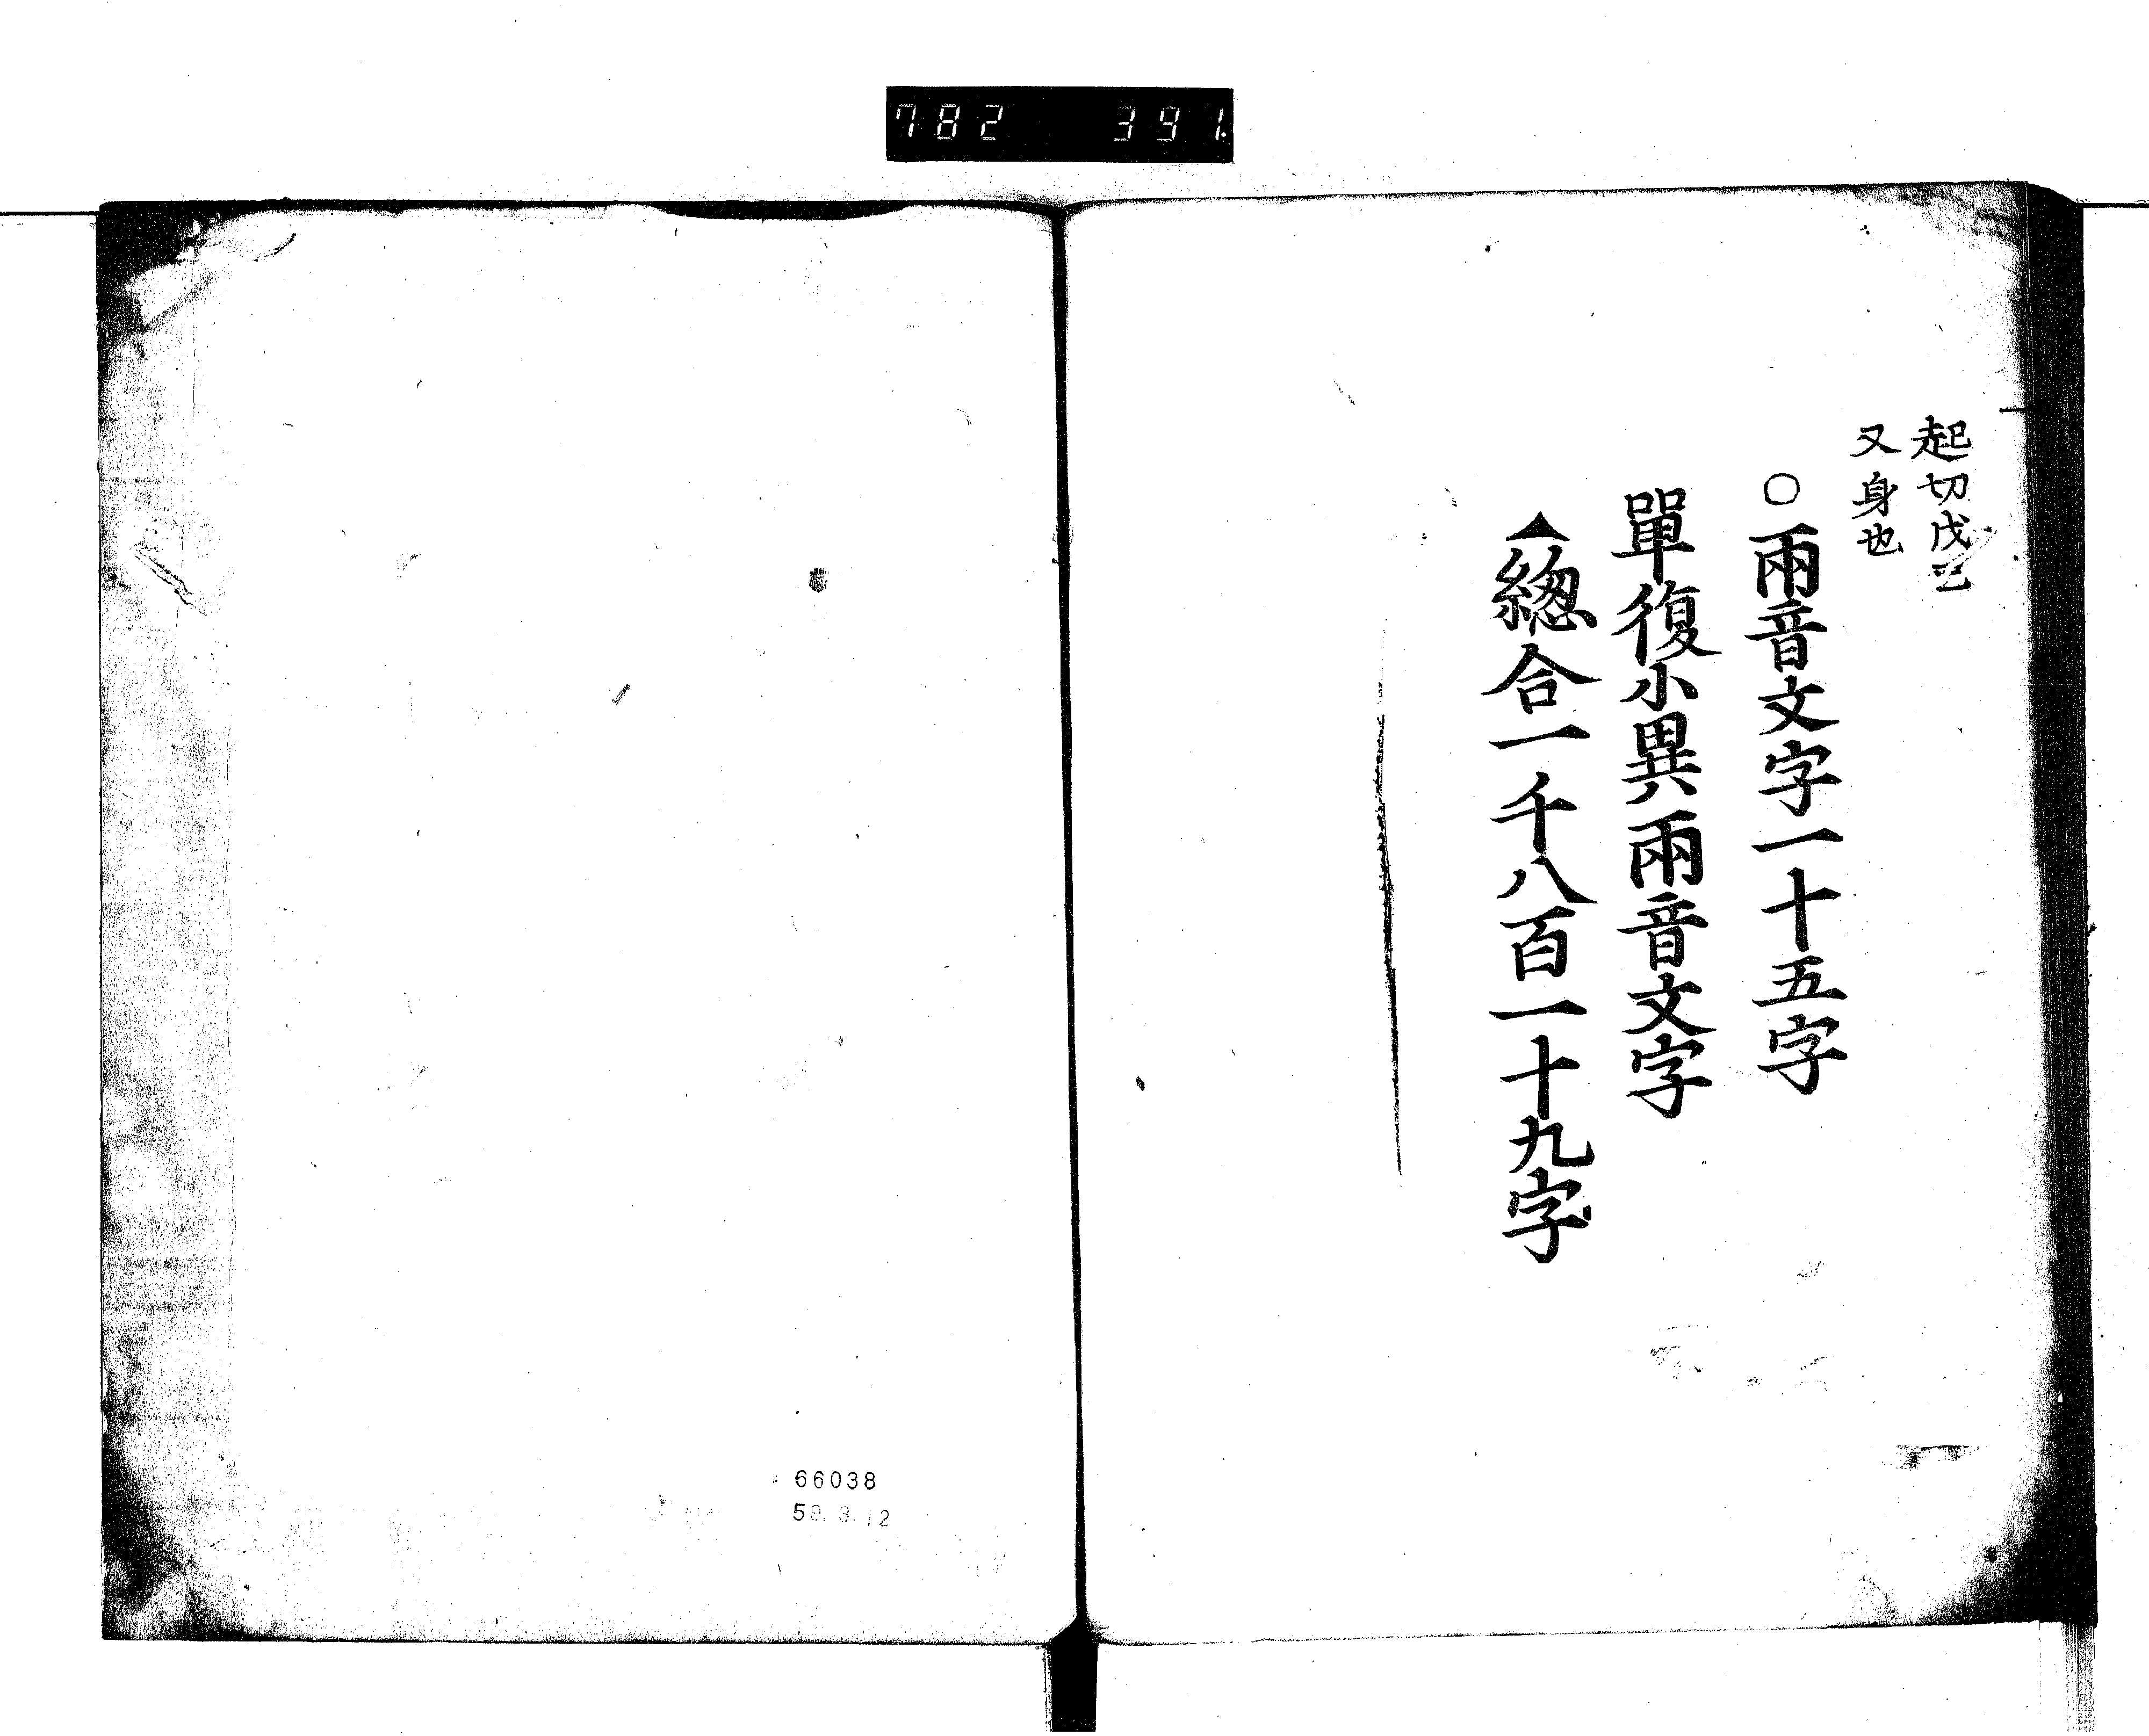 782 391
起切戊己
又身也
○兩音文字一十五字
單復小異兩音文字
▲緫合一千八百一十九字
66038
59.3.12